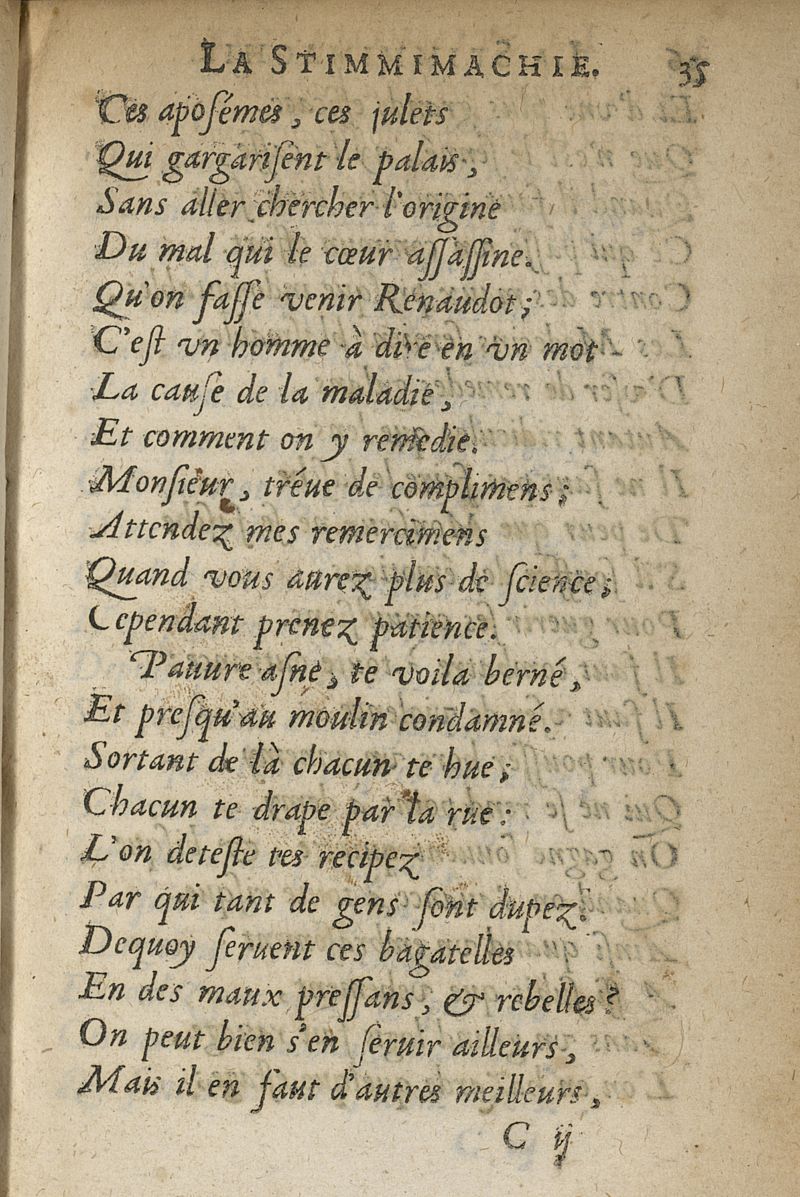 LA STIMMIMACHIE. 35
Ces aposémes, ces julets
Qui gargarisent le palais,
Sans aller chercher l'origine
Du mal qui le cœur assassine.
Qu'on fasse venir Renaudot;
C'est vn homme à dire en vn mot
La cause de la maladie,
Et comment on y remedie.
Monsieur, tréue de complimens;
Attendez mes remercimens
Quand vous aurez plus de science;
Cependant prenez patience.
Pauure asne, te voila berné,
Et presqu'au moulin condamné.
Sortant de là chacun te hue;
Chacun te drape par la rue:
L'on deteste tes recipez
Par qui tant de gens sont dupez.
Dequoy seruent ces bagatelles
En des maux pressans, & rebelles?
On peut bien s'en seruir ailleurs,
Mais il en faut d'autres meilleurs,
C ij